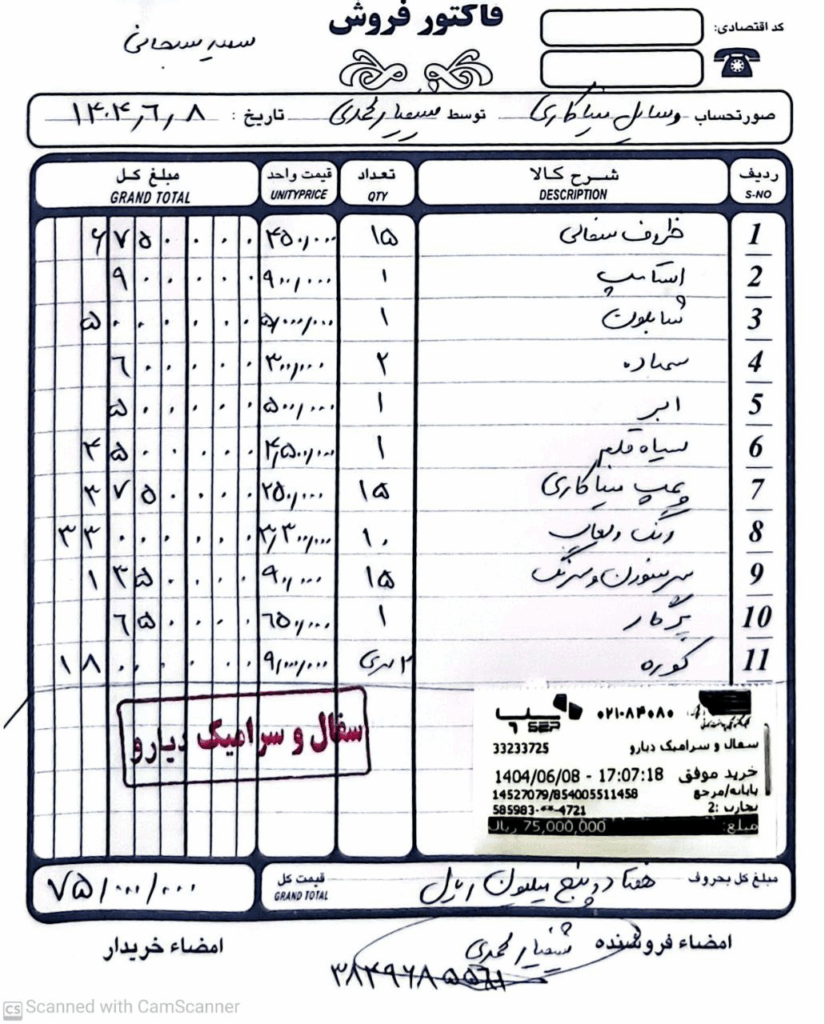 فاکتور فروش
کد اقتصادی:
صورتحساب وسایل میناکاری توسط محمدی تاریخ: ۱۴۰۴٫۶٫۸
ردیف S-NO شرح کالا DESCRIPTION تعداد QTY قیمت واحد UNITYPRICE مبلغ کل GRAND TOTAL
1 ظروف سفالی ۱۵ ۴۵۰٫۰۰۰ ۶۷۵۰۰۰۰
2 استامپ ۱ ۹۰۰٫۰۰۰ ۹۰۰۰۰۰
3 شابلون ۱ ۵٫۰۰۰٫۰۰۰ ۵۰۰۰۰۰۰
4 سمباده ۲ ۳۰۰٫۰۰۰ ۶۰۰۰۰۰
5 ابر ۱ ۵۰۰٫۰۰۰ ۵۰۰۰۰۰
6 سیاه قلم ۱ ۴٫۵۰۰٫۰۰۰ ۴۵۰۰۰۰۰
7 پمپ میناکاری ۱۵ ۲۵۰٫۰۰۰ ۳۷۵۰۰۰۰
8 رنگ ولعاب ۱۰ ۳٫۳۰۰٫۰۰۰ ۳۳۰۰۰۰۰۰
9 سرسوزن و سرنگ ۱۵ ۹۰٫۰۰۰ ۱۳۵۰۰۰۰
10 پرگار ۱ ۶۵۰٫۰۰۰ ۶۵۰۰۰۰
11 کوره ۲ سری ۹٫۰۰۰٫۰۰۰ ۱۸۰۰۰۰۰۰
سفال و سرامیک دیارو
سپ SEP ۰۲۱-۸۴۰۸۰
سفال و سرامیک دیارو 33233725
خرید موفق 1404/06/08 - 17:07:18
پایانه/مرجع 14527079/854005511458
تجارت: 2 585983-**-4721
مبلغ: 75,000,000 ریال
مبلغ کل بحروف هفتاد و پنج میلیون ریال قیمت کل GRAND TOTAL ۷۵/۰۰۰/۰۰۰
امضاء فروشنده محمدی امضاء خریدار
CS Scanned with CamScanner